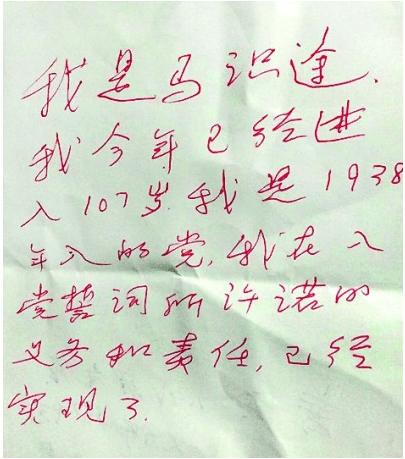 我是马识途.
我今年已经进
入107岁.我是1938
年入的党,我在入
党誓词所许诺的
义务和责任,已经
实现了.